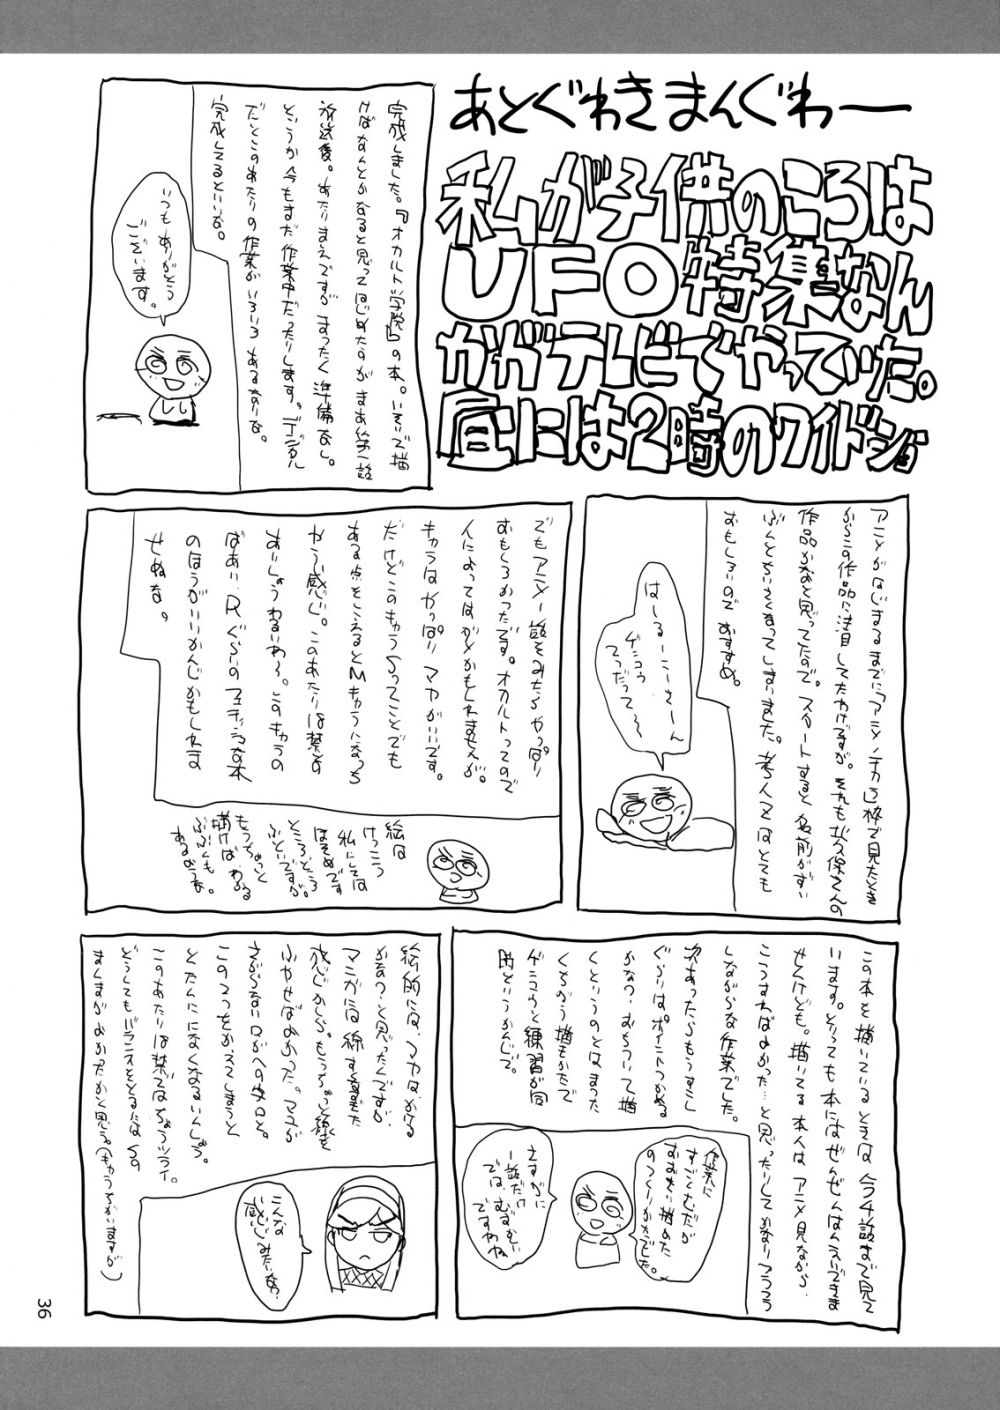 あとぐわきまんぐわー
私が子供のころは
UFO特集なん
かがテレビでやっていた。
昼には2時のワイドショ
完成しました。『オカルト学院』の本。いそいで描
けばなんとかなると思ってはじめたのがまあ第一話
放送後。あたりまえですがまったく準備なし。
というか今もまだ作業中だったりします。デジタル
だとこのあたりの作業がいろいろあるなりな。
完成してるといいな。
いつもありがとう
ございます。
アニメがはじまるまでに「アニメノチカラ」枠で見たとき
からこの作品に注目してたわけですが。それも水久保さんの
作品かなと思ってたので。スタートすると名前がずい
ぶんとちいさくなってしまいました。考人又はとても
おもしろいのでおすすめ。
はーるーこーさーん
ゲンコウ
てつだって
〜
でもアニメ一話をみたらやっぱり
おもしろかったです。オカルトってので
人によってはダメかもしれませんが。
キャラはやっぱりマヤがいいです。
だけどこのキャラSってことでも
ある点をこえるとMキャラになっち
ゃう感じ。このあたりは禁書
あいしょうわるいわ〜。このキャラの
ばあい、Rぐらいのフェチッシュな本
のほうがいいかんじかもしれま
せぬな。
絵は
けっこう
私にしては
ほそめです
ところどころ
ふといですが。
もうちょっと
描けばわかる
ぶぶんも
あるおうな。
この本を描いているときは今4話まで見て
います。とりっても本にはぜんぜんはんえいできま
せんけども。描いてる本人はアニメ見ながら、
こうすればよかった…と思ったりしてかなりフラフラ
しながらな作業でした。
次あったらもうすこし
ぐらいはポイントつかめる
かなっ。おちついて描
くというのとはまった
くちがう描きかたで
ゲンコウと練習が同
時というかんじで。
作業に
すごくむだが
おおすぎ描めた
のつくりかたでした。
さすがに
一話だけ
では、むずかしい
ですわね
絵的には、マヤはかてる
かなっ…と思ったんですが
マンガには線すくなめた
感じかしら。もうちょっと線を
ふやせばよかった。マユが
さがらない口がへの字口と。
この2つをかえてしまうと
とたんにになくなるいんしょう。
このあたりは禁書はちょうツライ。
どうしてもバランスをとるにはSの
まんまがよかったかと思う。(キャラちがいますが)
こんな
感じみたいな？
36